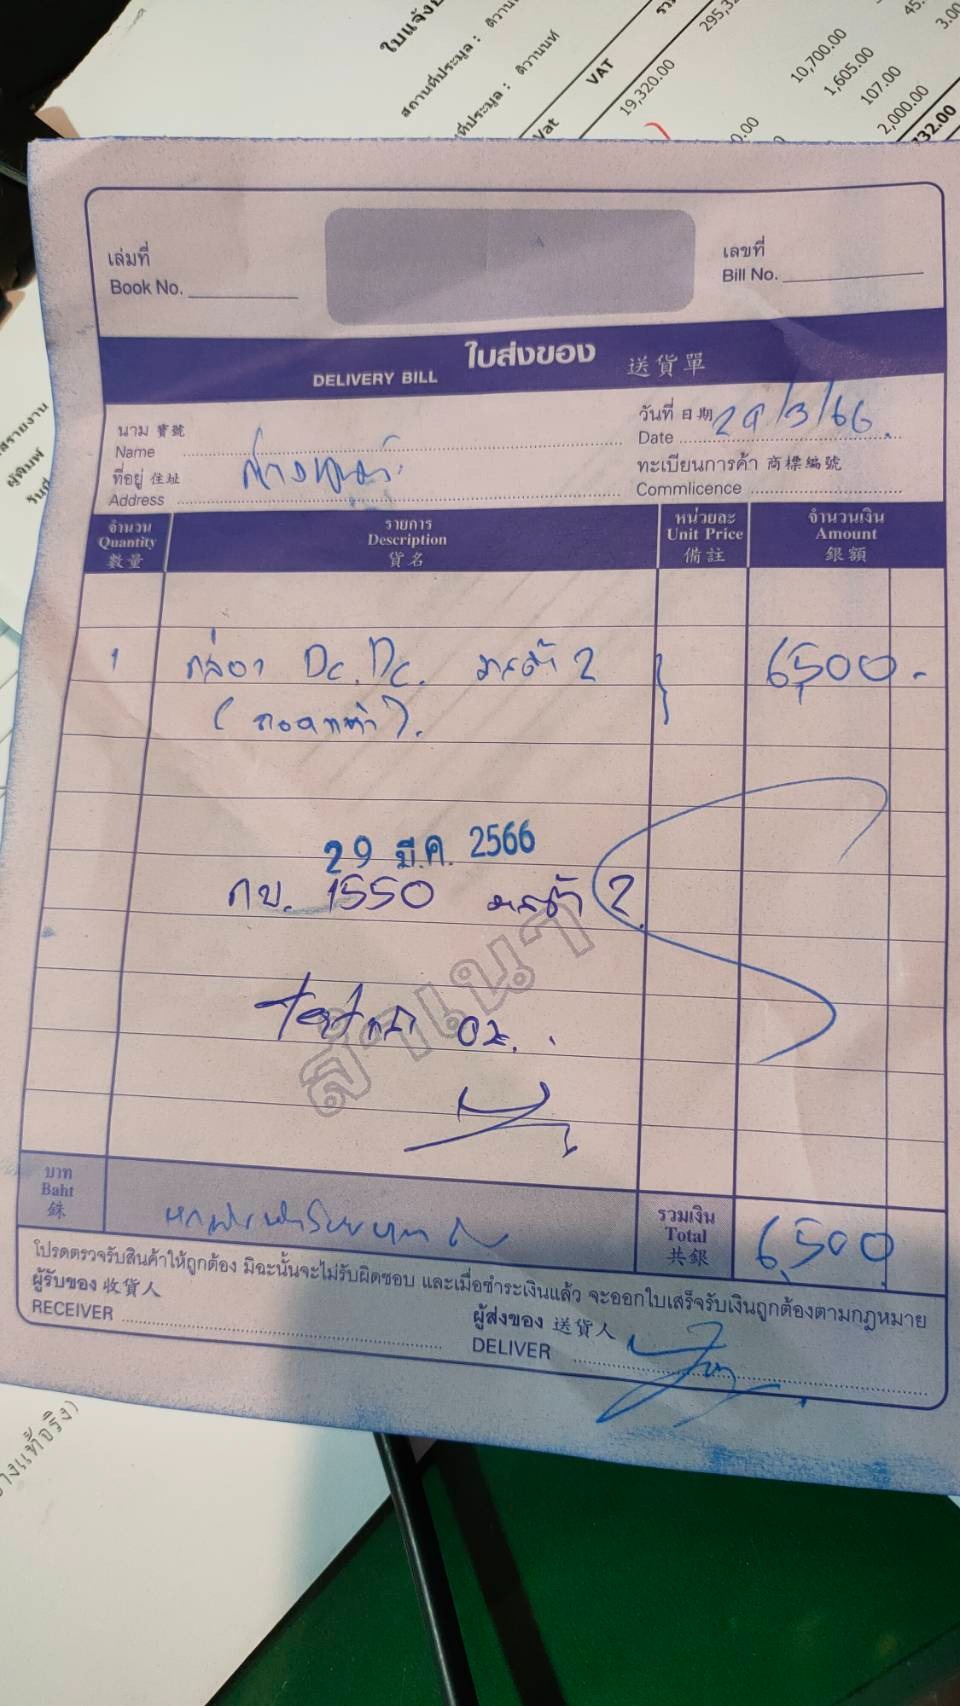 ใบแจ้ง
สถานที่ประมูล : ติวานนท์
ที่ประมูล : ติวานนท์
Vat
VAT
19,320.00
10,700.00
1,605.00
107.00
2,000.00
ผู้พิมพ์
เล่มที่
Book No.
เลขที่
Bill No.
ใบส่งของ
DELIVERY BILL
送貨單
นาม 寶號
Name
วันที่ 日期 29/3/66
Date
ที่อยู่ 住址
Address
ทะเบียนการค้า 商標編號
Commlicence
จำนวน รายการ หน่วยละ จำนวนเงิน
Quantity Description Unit Price Amount
數量 貨名 備註 銀額
1 กล่อง Dc. Dc. มาสด้า 2 6500.-
29 มี.ค. 2566
กบ. 1550 มาสด้า 2
สำเนา
บาท
Baht
銖
รวมเงิน
Total 6500
共銀
โปรดตรวจรับสินค้าให้ถูกต้อง มิฉะนั้นจะไม่รับผิดชอบ และเมื่อชำระเงินแล้ว จะออกใบเสร็จรับเงินถูกต้องตามกฎหมาย
ผู้รับของ 收貨人
RECEIVER
ผู้ส่งของ 送貨人
DELIVER